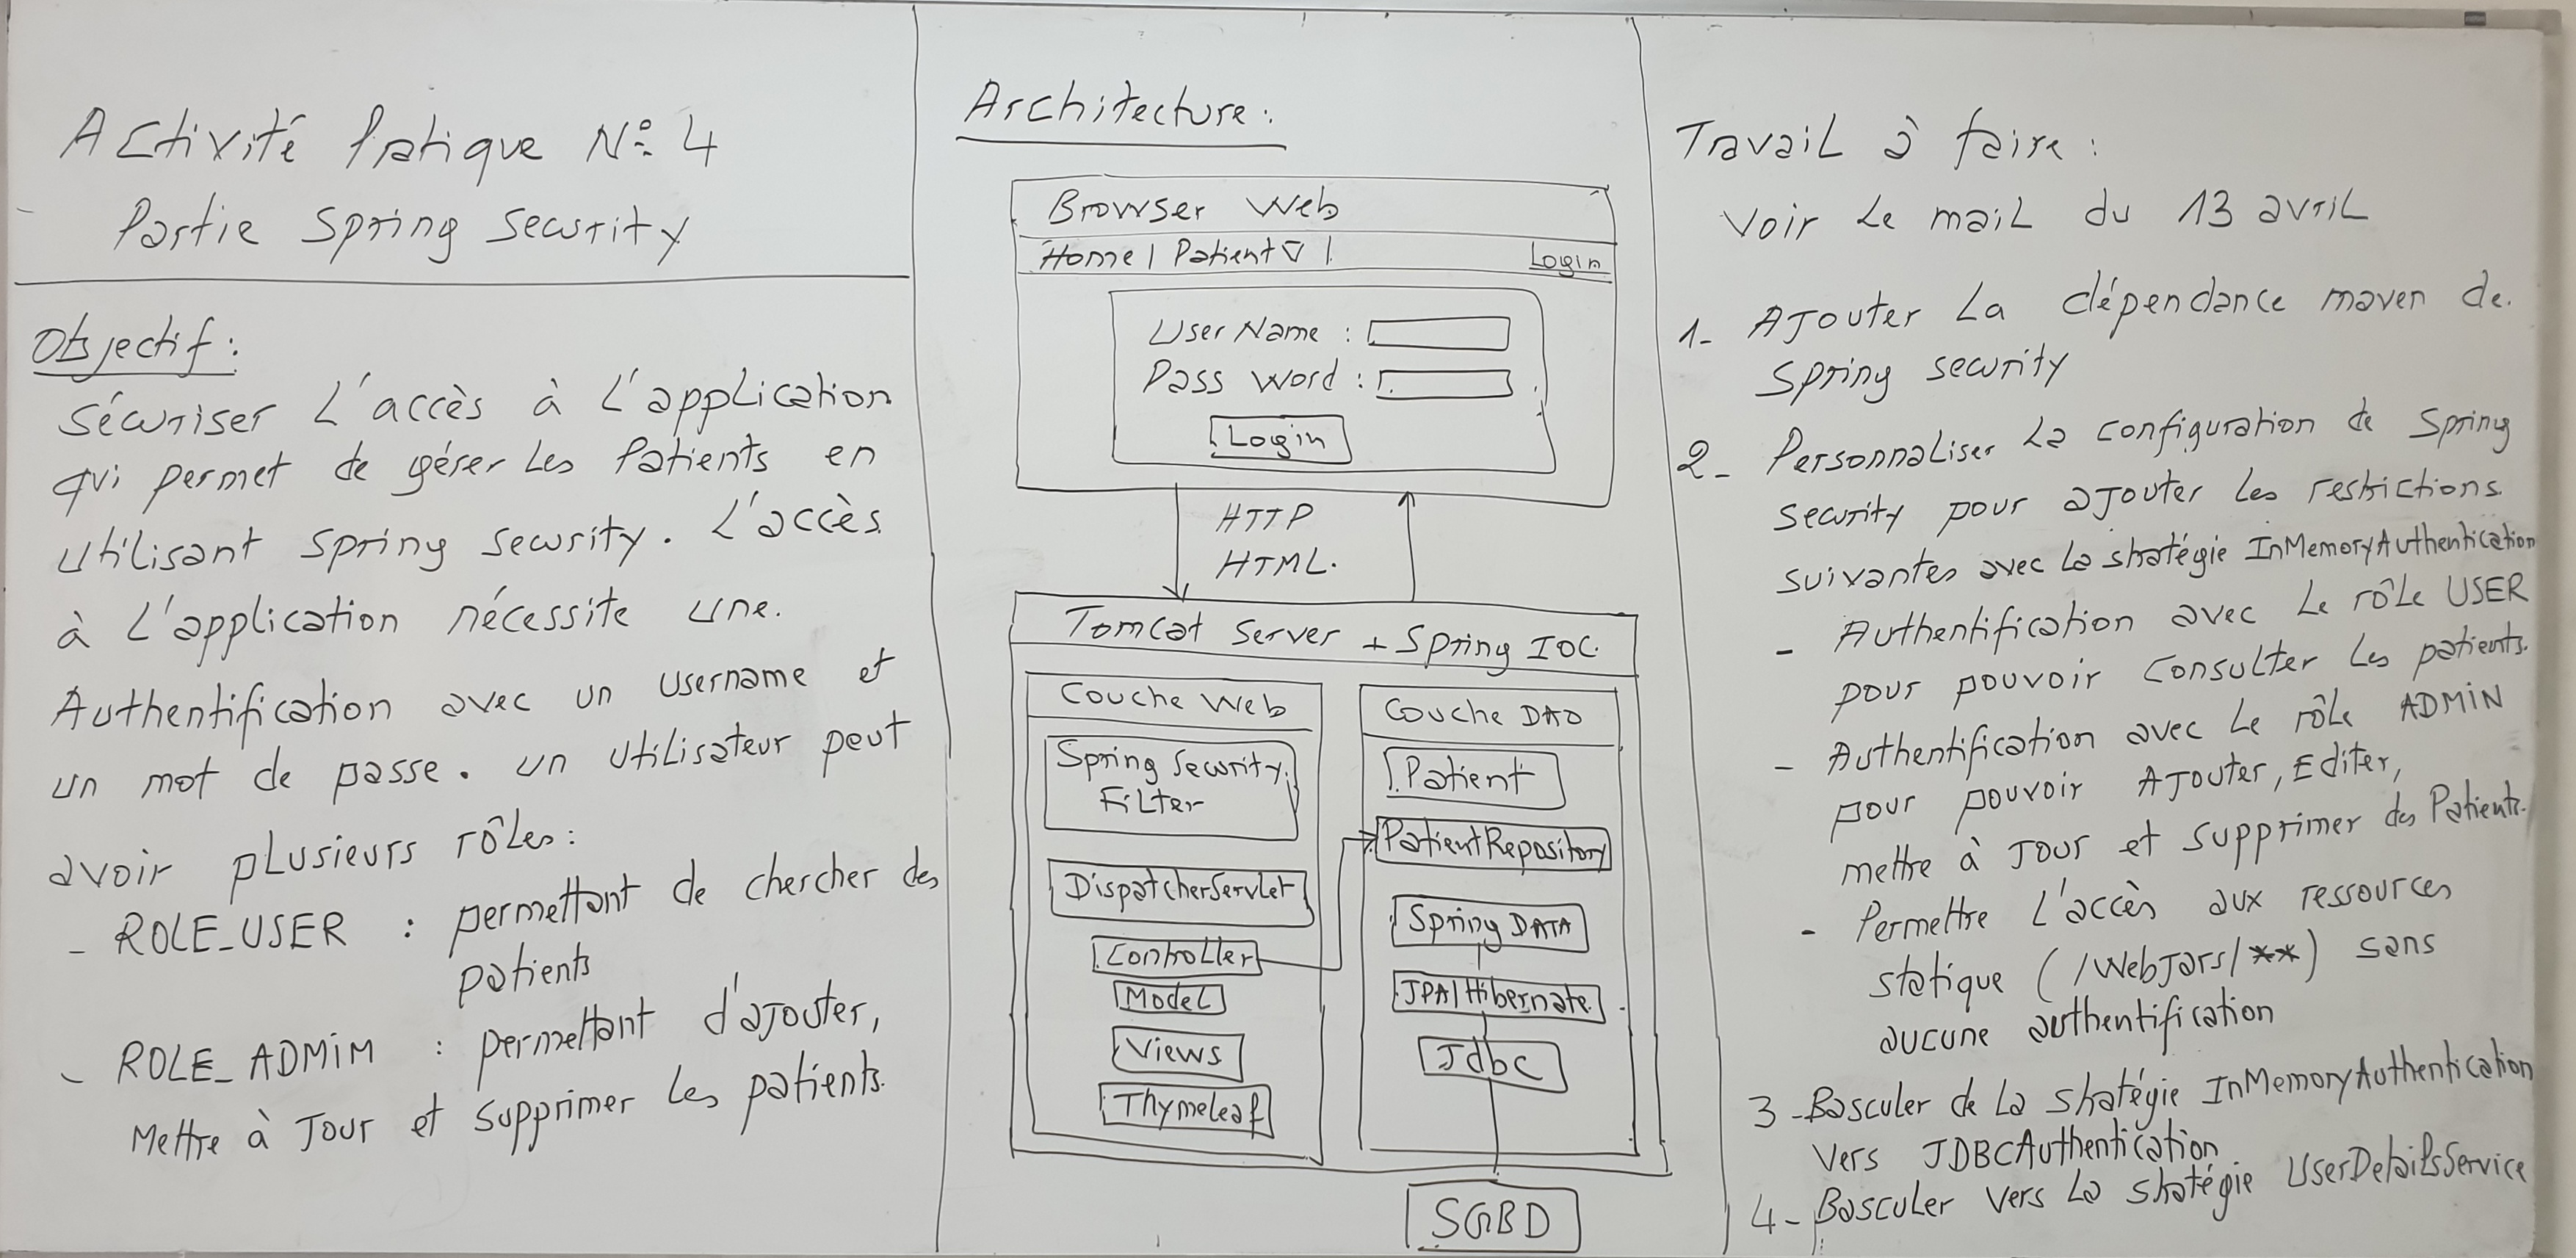 Activité Pratique N° 4
Partie Spring Security
Objectif :
Sécuriser L'accès à L'application
qui permet de gérer Les Patients en
utilisant Spring Security. L'accès
à L'application nécessite une.
Authentification avec un username et
un mot de passe. un utilisateur peut
avoir plusieurs rôles :
- ROLE_USER : permettant de chercher des
patients
- ROLE_ADMIN : permettant d'ajouter,
Mettre à Jour et supprimer les patients.
Architecture :
Browser Web
Home | Patient ▽ |
Login
User Name :
Pass Word :
Login
HTTP
HTML.
Tomcat Server + Spring IOC.
Couche Web
Spring Security
Filter
DispatcherServlet
Controller
Model
Views
Thymeleaf
Couche DAO
Patient
PatientRepository
Spring DATA
JPA/Hibernate
Jdbc
SGBD
Travail à faire :
Voir Le mail du 13 avril
1- AJouter La dépendance maven de.
Spring security
2- Personnaliser La configuration de Spring
security pour aJouter Les restrictions.
suivantes avec La stratégie InMemoryAuthentication
- Authentification avec Le rôle USER
pour pouvoir Consulter Les patients.
- Authentification avec Le rôle ADMIN
pour pouvoir AJouter, Editer,
mettre à Jour et supprimer des Patients.
- Permettre L'accès aux ressources
statique (/WebJars/**) sans
aucune authentification
3 - Basculer de La stratégie InMemoryAuthentication
vers JDBCAuthentication
4 - Basculer vers La stratégie UserDetailsService